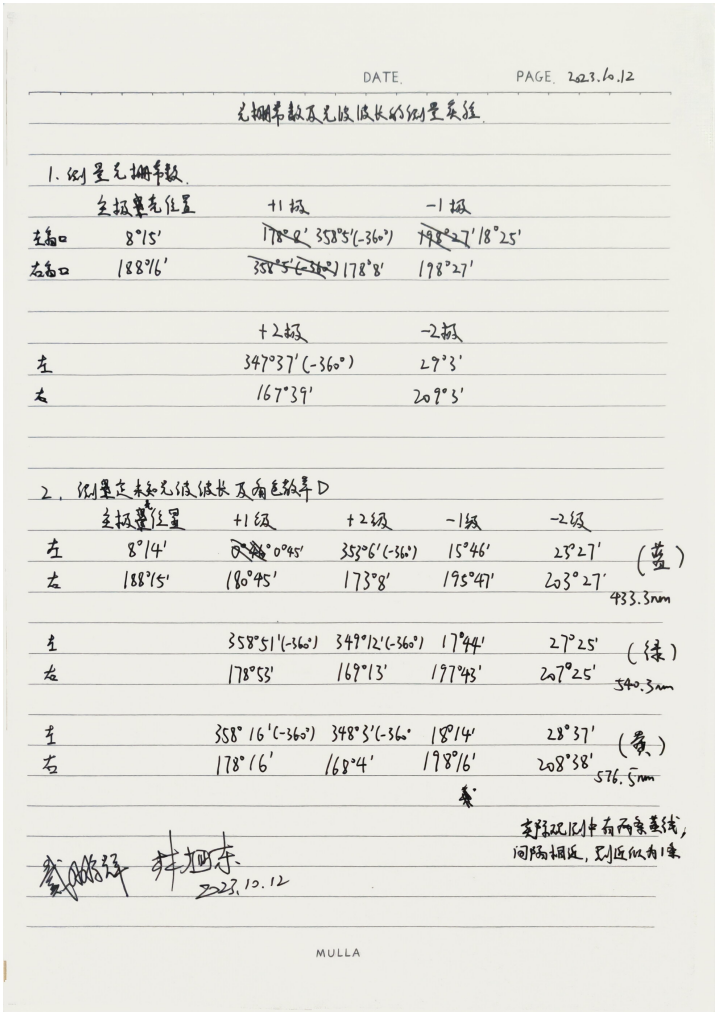 DATE. PAGE. 2023.10.12
光栅常数及光波波长的测量实验.
1. 测量光栅常数.
主极亮位置 +1极 -1极
左窗口 8°15' 178°8' 358°5'(-360°) 198°27' 18°25'
右窗口 188°16' 358°5'(-360°) 178°8' 198°27'
+2极 -2极
左 347°37'(-360°) 29°3'
右 167°39' 209°3'
2. 测量定未知光波波长及角色散率D
主极亮位置 +1级 +2级 -1级 -2级
左 8°14' 0°45' 353°6'(-360°) 15°46' 23°27' (蓝)
右 188°15' 180°45' 173°8' 195°47' 203°27'
433.3nm
左 358°51'(-360°) 349°12'(-360°) 17°44' 27°25' (绿)
右 178°53' 169°13' 197°43' 207°25'
540.3nm
左 358°16'(-360°) 348°3'(-360° 18°14' 28°37' (黄)
右 178°16' 168°4' 198°16' 208°38'
576.5nm
实际观测中有两条黄线,
间隔相近,则近似为1条
2023.10.12
MULLA